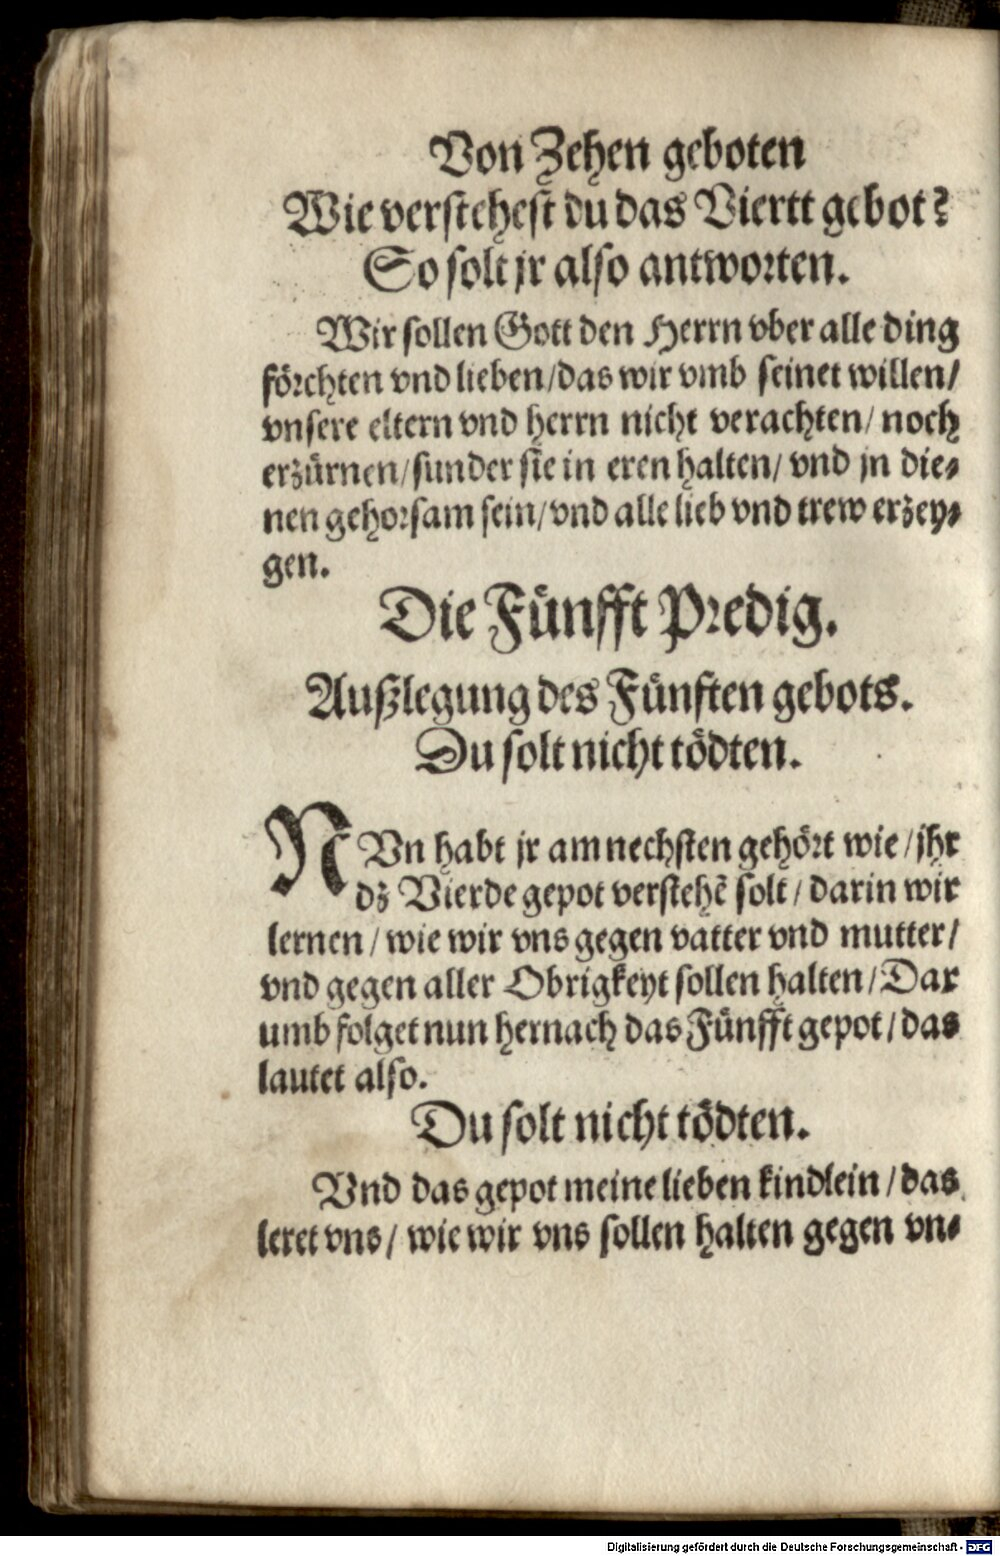 Von Zehen geboten
Wie verstehest du das Viertt gebot?
So solt jr also antworten.
Wir sollen Gott den Herrn vber alle ding
förchten vnd lieben/das wir vmb seinet willen/
vnsere eltern vnd herrn nicht verachten/ noch
erzürnen/sunder sie in eren halten/ vnd jn die-
nen gehorsam sein/vnd alle lieb vnd trew erzey-
gen.
Die Fünfft Predig.
Außlegung des Fünften gebots.
Du solt nicht tödten.
NVn habt jr am nechsten gehört wie/jhr
dz Vierde gepot verstehē solt/ darin wir
lernen/ wie wir vns gegen vatter vnd mutter/
vnd gegen aller Obrigkeyt sollen halten/Dar
umb folget nun hernach das Fünfft gepot/das
lautet also.
Du solt nicht tödten.
Vnd das gepot meine lieben kindlein/das
leret vns/ wie wir vns sollen halten gegen vn-
Digitalisierung gefördert durch die Deutsche Forschungsgemeinschaft - DFG